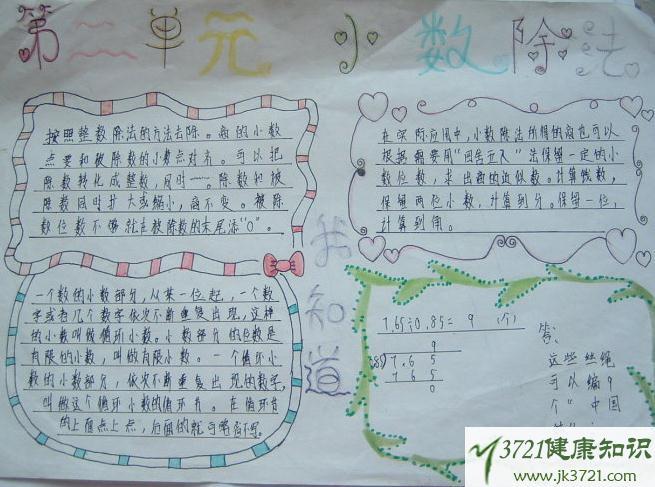 第二单元 小数除法
按照整数除法的方法去除。商的小数
点要和被除数的小数点对齐。可以把
除数转化成整数,同时……。除数和被
除数同时扩大或缩小,商不变。被除
数位数不够就在被除数的末尾添“0”。
在实际应用中,小数除法所得的商也可以
根据需要用“四舍五入”法保留一定的小
数位数,求出商的近似数。计算钱数,
保留两位小数,计算到分。保留一位,
计算到角。
我知道
一个数的小数部分,从某一位起,一个数
字或者几个数字依次不断重复出现,这样
的小数叫做循环小数。小数部分的位数是
有限的小数,叫做有限小数。一个循环小
数的小数部分,依次不断重复出现的数字,
叫做这个循环小数的循环节。在循环节
的上面点上点,后面的就可省略不写。
7.65÷0.85= 9 (个)
9
7.6 5
7 6 5
0
答:
这些丝绳
可以编9
个“中国
3721健康知识
www.jk3721.com